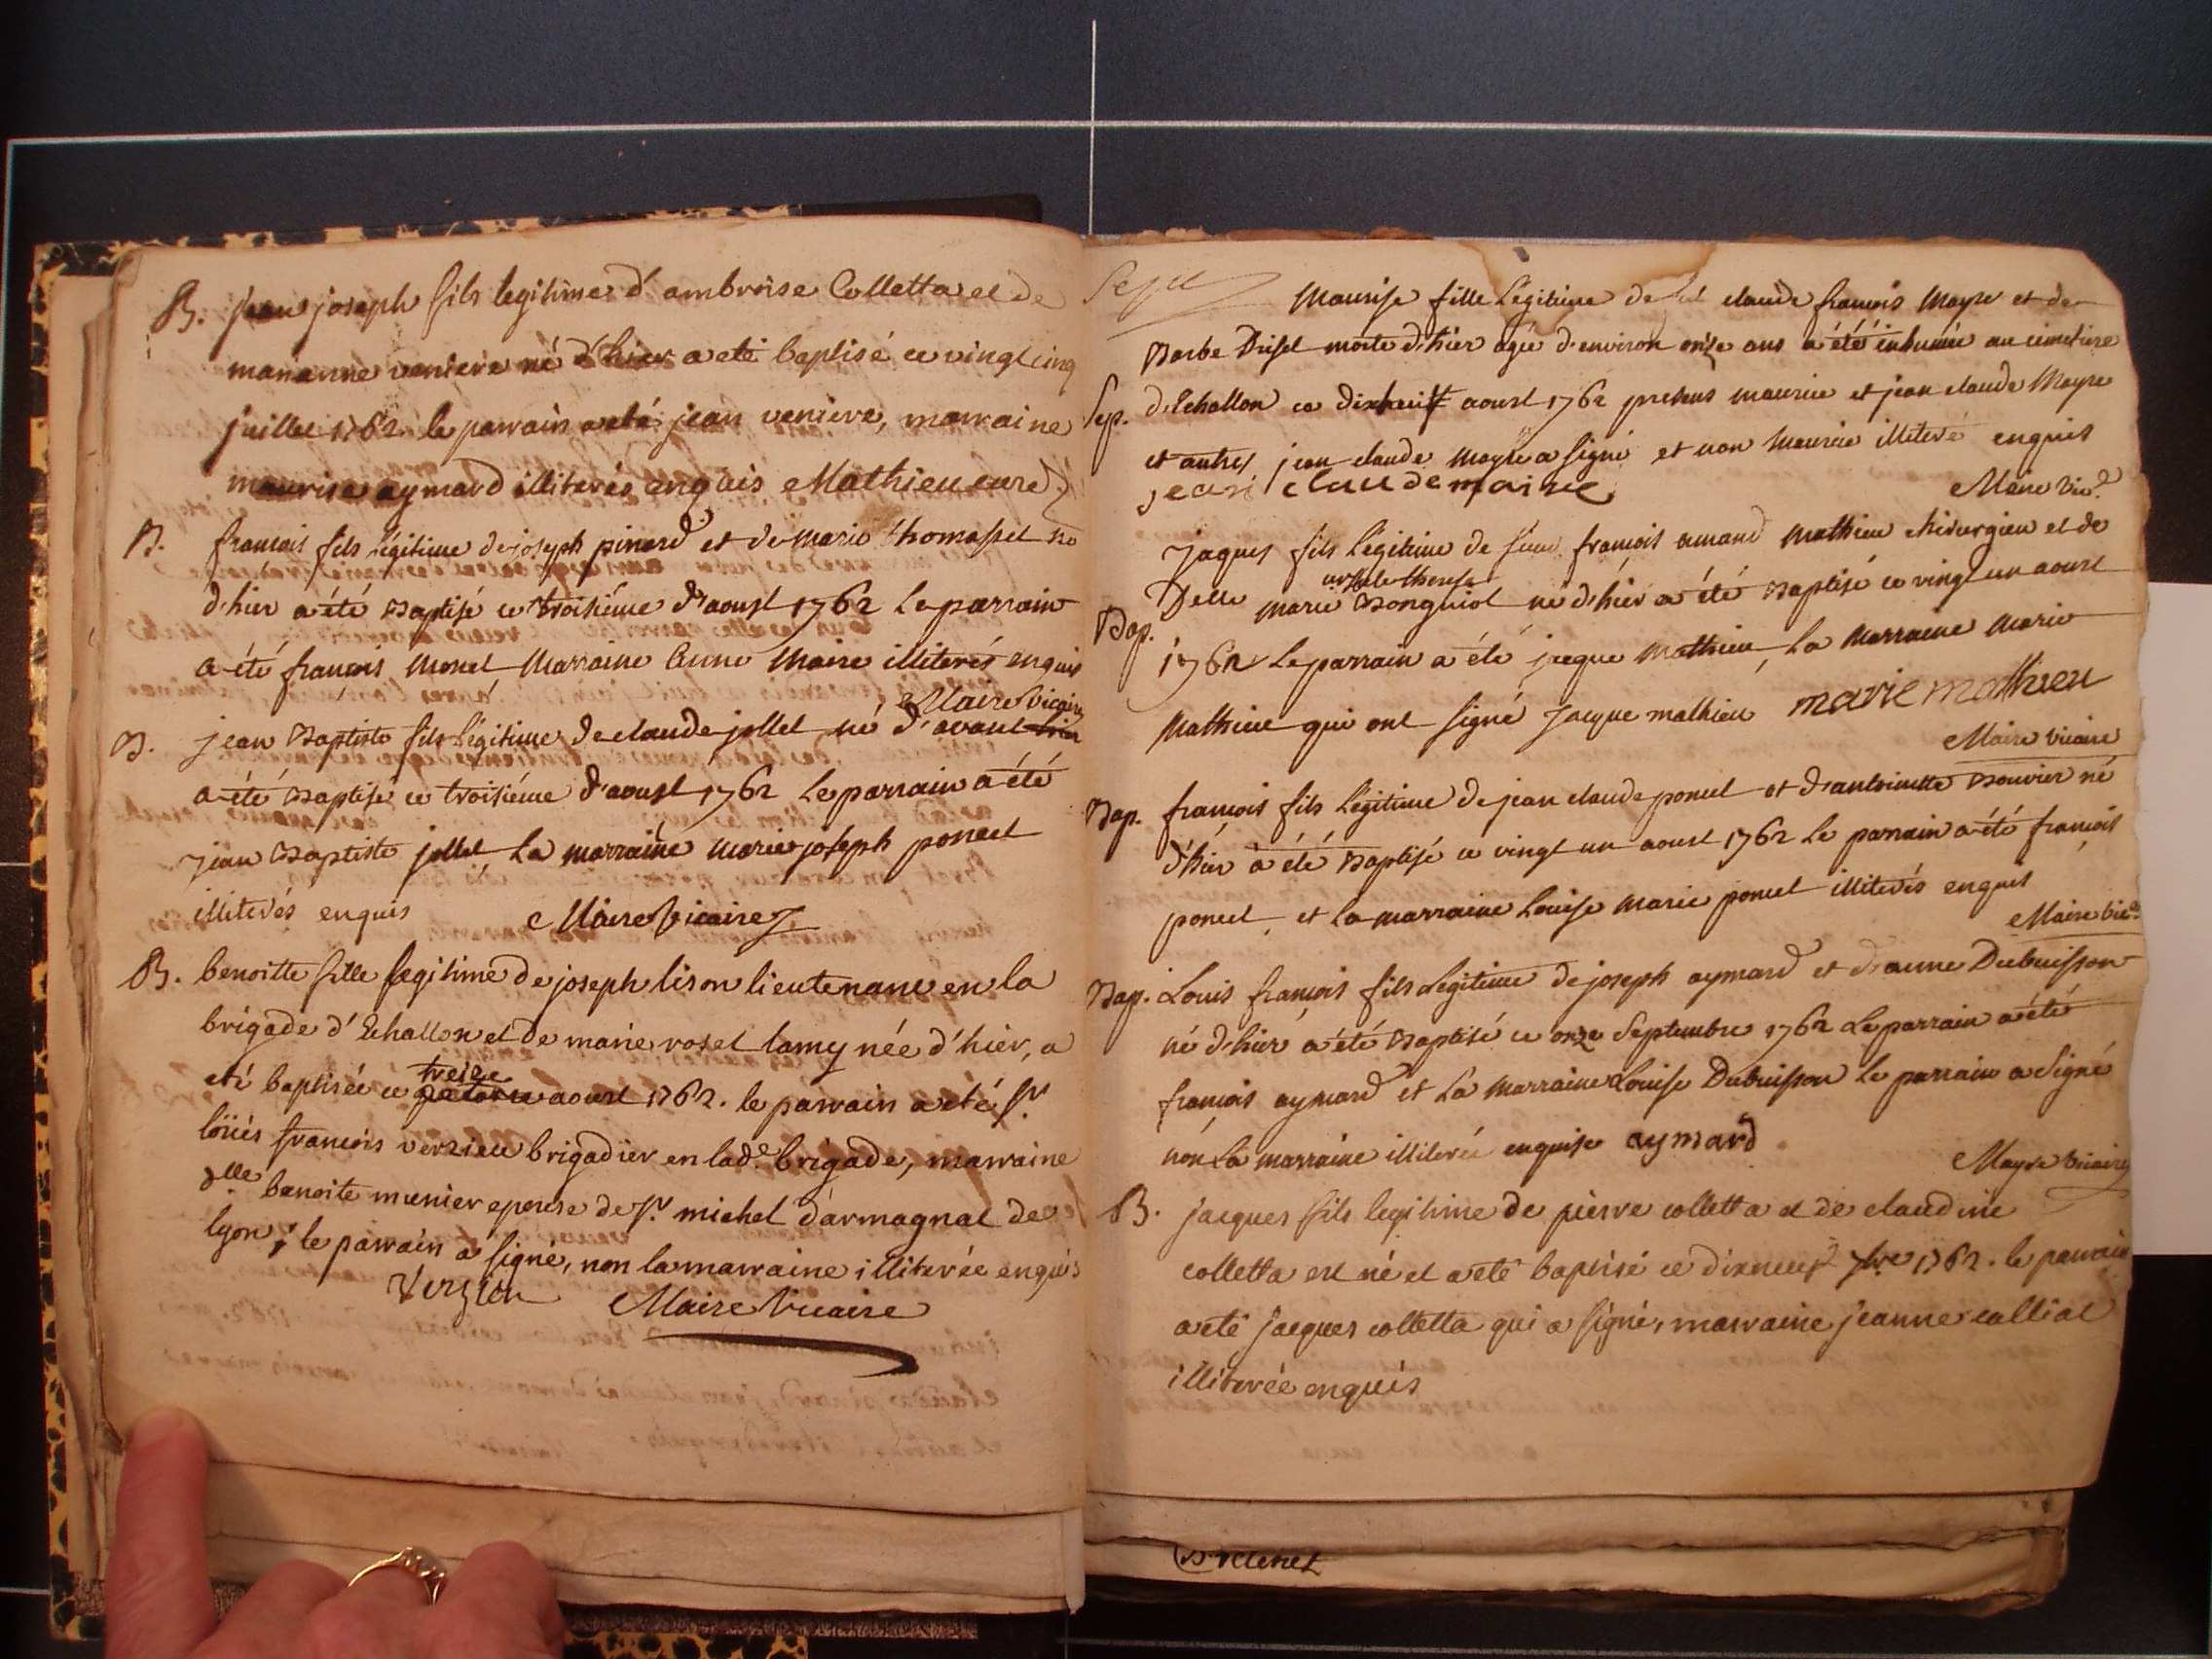 B. jean joseph fils legitime d'ambroise Colletta et de
marianne veniere né d'hier a eté baptisé ce vingt cinq
juillet 1762. le parrain a eté jean veniere, marraine
maurise aymard illiterés enquis Mathieu curé
B. françois fils légitime de joseph pinard et de marie thomasset né
d'hier a été Baptisé ce troisiéme d'aoust 1762 Le parrain
a été françois Monet Marraine Anne Maire illiterés enquis
Maire Vicaire
B. jean Baptiste fils Légitime de claude jollet né d'avant hier
a été Baptisé ce troisiéme d'aoust 1762 Le parrain a été
jean Baptiste jollet La marraine marie joseph poncet
illiterés enquis Maire Vicaire
B. benoitte fille legitime de joseph lison lieutenant en la
brigade d'Echallon et de marie roset lamy née d'hier, a
eté baptisée ce quatorze treize aoust 1762. le parrain a eté Sr.
loüis françois verzieu brigadier en lade. brigade, marraine
dlle benoite munier epouse de Sr. michel d'armagnac de
lyon, le parrain a signé, non la marraine illiterée enquis
Verzieu Maire Vicaire
Sepul
Maurise fille Légitime de claude françois Mayre et de
Barbe morte d'hier agée d'environ onze ans a été inhumée au cimetiere
Sep. d'Echallon ce dixhuit aoust 1762 presens maurice et jean claude Mayre
et autres jean claude Mayre a signé et non Maurice illiteré enquis
jean claude maire Maire Vice.
jaques fils Légitime de sieur françois amand Mathieu chirurgien et de
Delle marie ursule therese Bonguiot né d'hier a été Baptisé ce vingt un aoust
Bap. 1762 Le parrain a été jacque Mathieu, La Marraine Marie
Mathieu qui ont signé Jacque mathieu marie mathieu
Maire vicaire
Bap. françois fils Légitime de jean claude poncet et d'antoinette Bouvier né
d'hier a été Baptisé ce vingt un aoust 1762 Le parrain a été françois
poncet, et La marraine Louise Marie poncet illiterés enquis
Maire vice.
Bap. Louis françois fils Legitime de joseph aymard et d'anne Dubuisson
né d'hier a été Baptisé ce onze Septembre 1762 Le parrain a été
françois aymard et La Marraine Louise Dubuisson Le parrain a Signé
non La marraine illiterée enquise aymard
Mayre vicaire
B. jacques fils legitime de pierre colletta et de claudine
colletta est né et a eté baptisé ce dixneuf 7bre 1762. le parrain
a eté jacques colletta qui a signé, marraine jeanne calliat
illiterée enquis